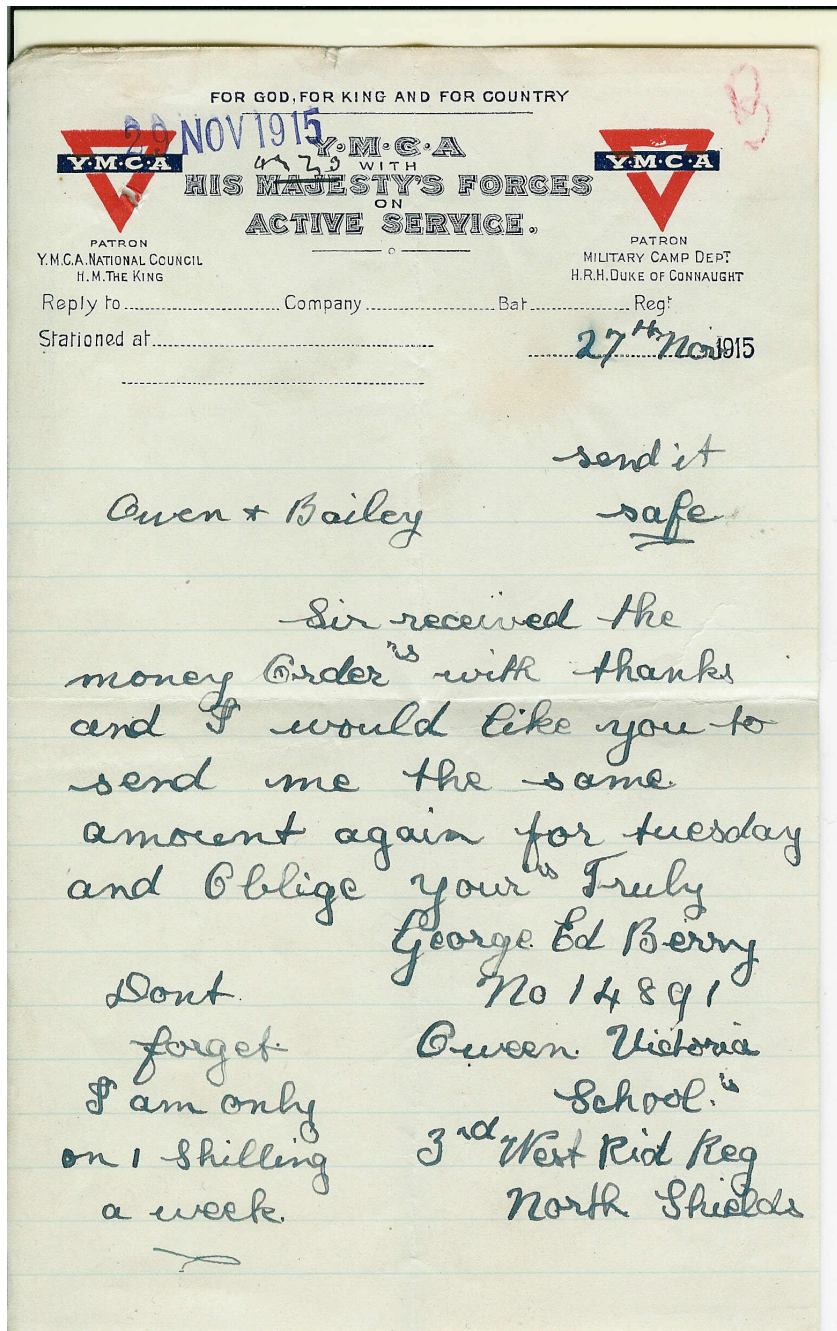 FOR GOD, FOR KING AND FOR COUNTRY
29 NOV 1915
Y·M·C·A
WITH
HIS MAJESTY'S FORCES
ON
ACTIVE SERVICE.
Y·M·C·A
PATRON
Y.M.C.A. NATIONAL COUNCIL
H.M. THE KING
Y·M·C·A
PATRON
MILITARY CAMP DEPT
H.R.H. DUKE OF CONNAUGHT
Reply to Company Bat Regt
Stationed at
27th Nov 1915
send it
safe
Owen + Bailey
Sir received the
money Order"s with thanks
and I would like you to
send me the same
amount again for tuesday
and Oblige your"s Truly
George Ed Berry
No 14891
Queen Victoria
School."s
3rd West Rid Reg
North Shields
Dont
forget
I am only
on 1 Shilling
a week.